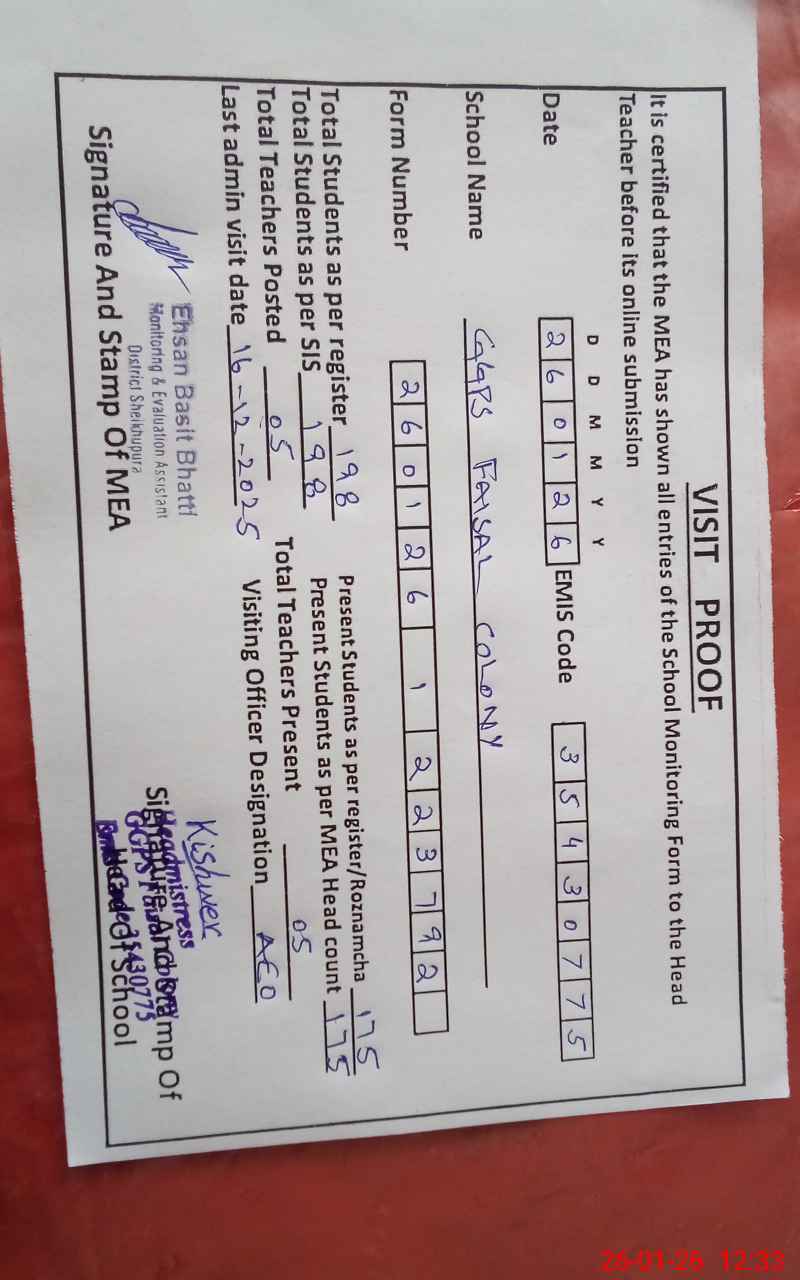 VISIT PROOF
It is certified that the MEA has shown all entries of the School Monitoring Form to the Head
Teacher before its online submission
D D M M Y Y
Date 260126 EMIS Code 35430775
School Name GGPS FAISAL COLONY
Form Number 260126 1 223792
Total Students as per register 198 Present Students as per register/Roznamcha 175
Total Students as per SIS 198 Present Students as per MEA Head count 175
Total Teachers Posted 05 Total Teachers Present 05
Last admin visit date 16-12-2025 Visiting Officer Designation AEO
Ehsan Basit Bhatti
Monitoring & Evaluation Assistant
District Sheikhupura
Signature And Stamp Of MEA
Kishwer
Headmistress
GGPS Faisal Colony
Emis Code 35430775
Signature And Stamp Of
Head Of School
26-01-26 12:33